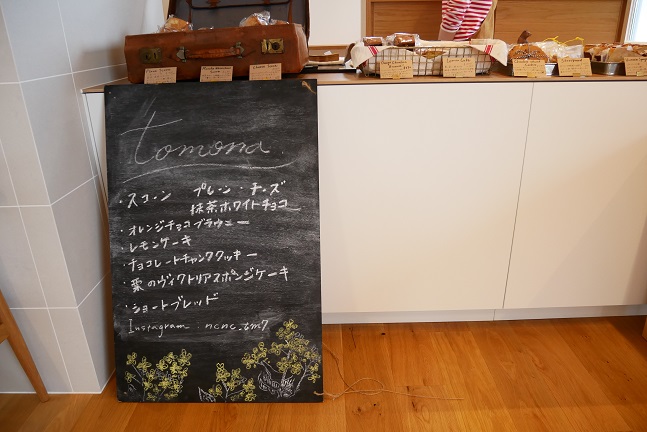 tomona
・スコーン プレーン・チーズ
抹茶ホワイトチョコ
・オレンジチョコブラウニー
・レモンケーキ
・チョコレートチャンククッキー
・栗のヴィクトリアスポンジケーキ
・ショートブレッド
Instagram